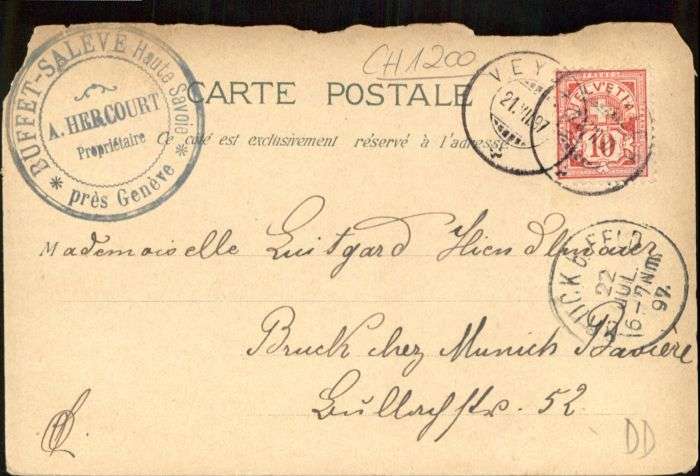 BUFFET-SALÈVE Haute Savoie
A. HERCOURT
Propriétaire
* près Genève *
CH1200
CARTE POSTALE
Ce côté est exclusivement réservé à l'adresse
VEY
21.VII.97
HELVETIA
10
BRUCK B. FFELD
22
JUL.
6-7 NM.
97.
Mademoiselle Luitgard Hiendlmaier
Bruck chez Munich Bavière
Gullachstr. 52.
DD